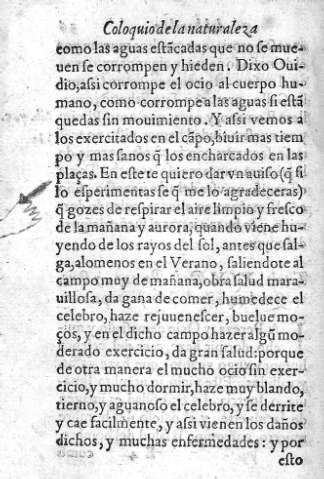 Coloquio de la naturaleza
como las aguas estãcadas que no se mue-
uen se corrompen y hieden. Dixo Oui-
dio, assi corrompe el ocio al cuerpo hu-
mano, como corrompe a las aguas si estã
quedas sin mouimiento. Y assi vemos a
los exercitados en el cãpo, biuir mas tiem
po y mas sanos q̃ los encharcados en las
plaças. En este te quiero dar vn auiso (q̃ si
lo esperimentas se q̃ me lo agradeceras)
q̃ gozes de respirar el aire limpio y fresco
de la mañana y aurora, quando viene hu-
yendo de los rayos del sol, antes que sal-
ga, alomenos en el Verano, saliendote al
campo muy de mañana, obra salud mara-
uillosa, da gana de comer, humedece el
celebro, haze rejuuenescer, buelue mo-
ços, y en el dicho campo hazer algũ mo-
derado exercicio, da gran salud: porque
de otra manera el mucho ocio sin exer-
cicio, y mucho dormir, haze muy blando,
tierno, y aguanoso el celebro, y se derrite
y cae facilmente, y assi vienen los daños
dichos, y muchas enfermedades: y por
esto